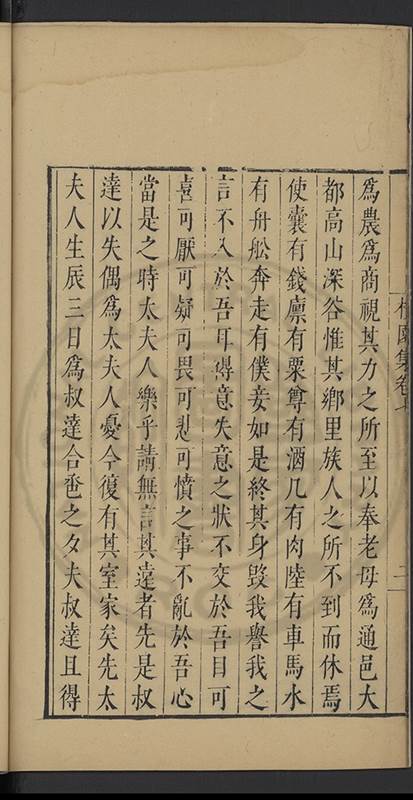 為農為商視其力之所至以奉老母為通邑大
都高山深谷惟其鄉里族人之所不到而休焉
使囊有錢廪有粟尊有酒几有肉陸有車馬水
有舟舩奔走有僕妾如是終其身毀我譽我之
言不入於吾耳得意失意之狀不交於吾目可
喜可厭可疑可畏可悲可憤之事不亂於吾心
當是之時太夫人樂乎請無言其違者先是叔
達以失偶為太夫人憂今復有其室家矣先太
夫人生辰三日為叔達合卺之夕夫叔達且得
園集卷七
二